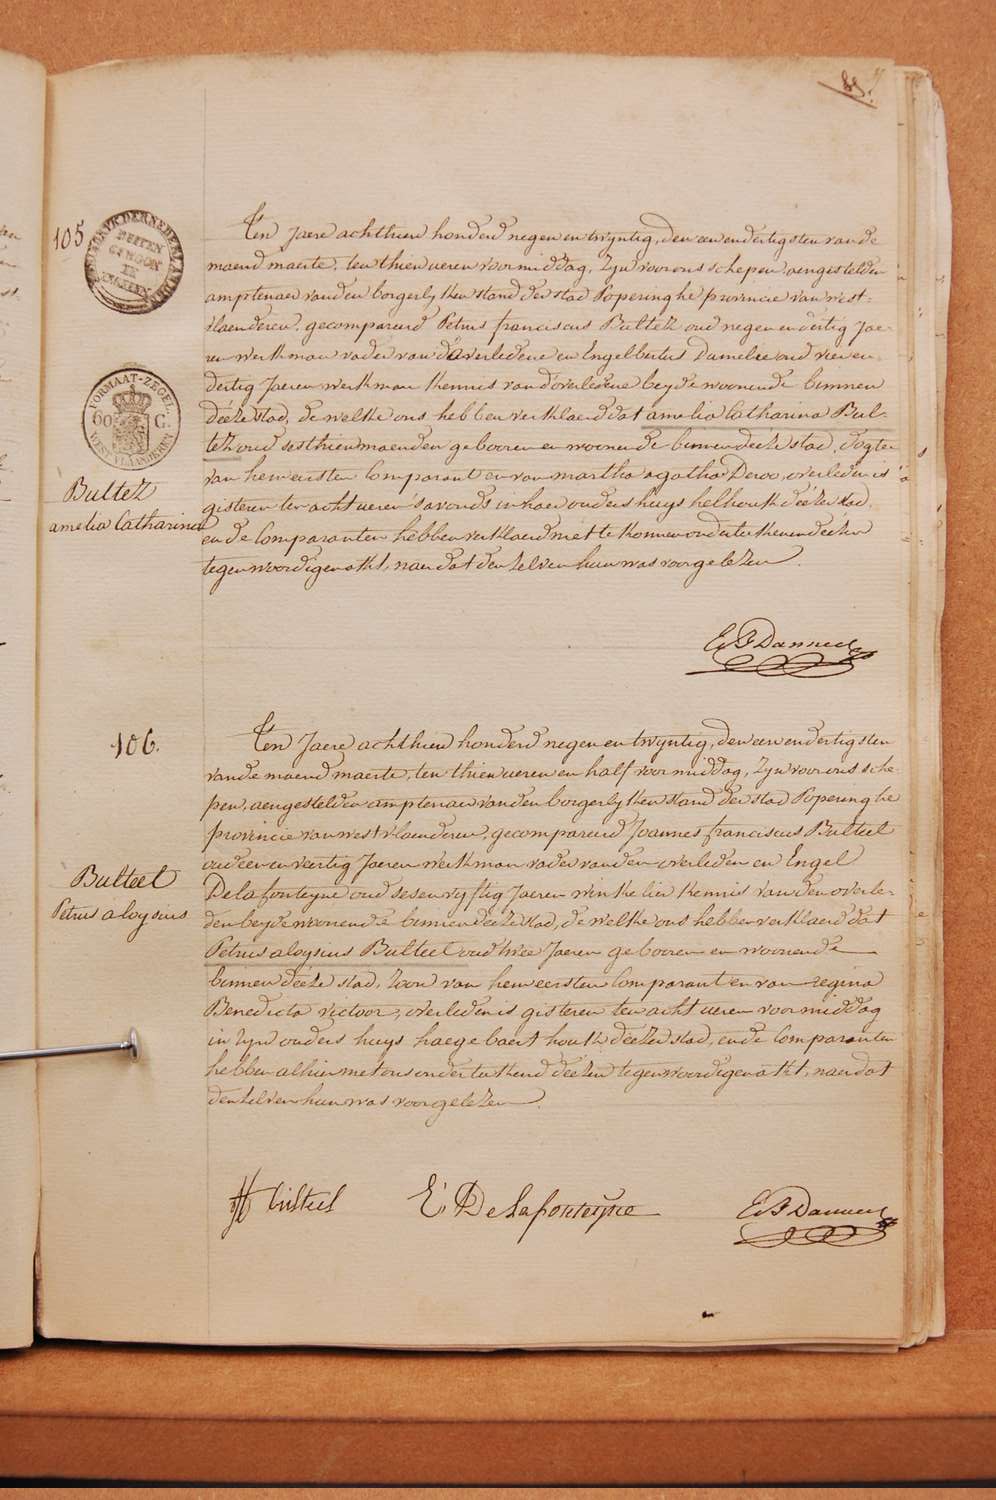 89.
105
FORMAAT-ZEGEL
60 C.
WEST-VLAANDEREN
Bultez
amelia Catharina
Ten Jaere achthien honderd negen en twyntig, den een en dertigsten van de
maend maerte, ten thien ueren voormiddag, Zyn voor ons schepen, aengestelden
amptenaer van den borgerlyken stand der stad Poperinghe provincie van west-
vlaenderen, gecompareerd Petrus franciscus Bultez oud negen en dertig Jae-
ren werkman vader van d'overledene en Engelbertus Damelie oud vier en
dertig Jaeren werkman Kennis van d'overledene beyde woonende binnen
déeze stad, de welke ons hebben verklaerd dat amelia Catharina Bul-
tez oud sesthien maenden gebooren en woonende binnen déeze stad, dogter
van hem eersten Comparant en van martha agatha Deroo, overleden is
gisteren ten acht ueren 's avonds in haer ouders huys helhoek déezer stad,
en de Comparanten hebben verklaerd niet te konnen onderteekenen deezen
tegenwoordigen akt, naer dat den zelven hun was voorgelezen.
106.
Bulteel
Petrus aloysius
Ten Jaere achthien honderd negen en twyntig, den een en dertigsten
van de maend maerte, ten thien ueren en half voormiddag, Zyn voor ons sche-
pen, aengestelden amptenaer van den borgerlyken stand der stad Poperinghe
provincie van westvlaenderen, gecompareerd Joannes franciscus Bulteel
oud een en veertig Jaeren werkman vader van den overleden en Engel
Delafonteyne oud ses en vyftig Jaeren winkelier Kennis van den overle-
den beyde woonende binnen deeze stad, de welke ons hebben verklaerd dat
Petrus aloysius Bulteel oud twee Jaeren gebooren en woonende
binnen déeze stad, zoon van hem eersten Comparant en van regina
Benedicta victoor, overleden is gisteren ten acht ueren voormiddag
in zyn ouders huys haegebaert houck déezer stad, en de Comparanten
hebben alhier met ons onderteekend deezen tegenwoordigen akt, naer dat
den zelven hun was voorgelezen.
bulteel E. Delafonteyne